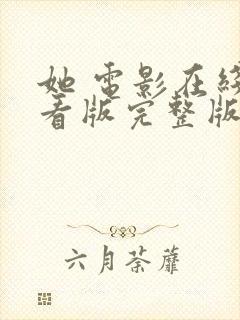 她 电影在线
看版完整版
六月荼蘼